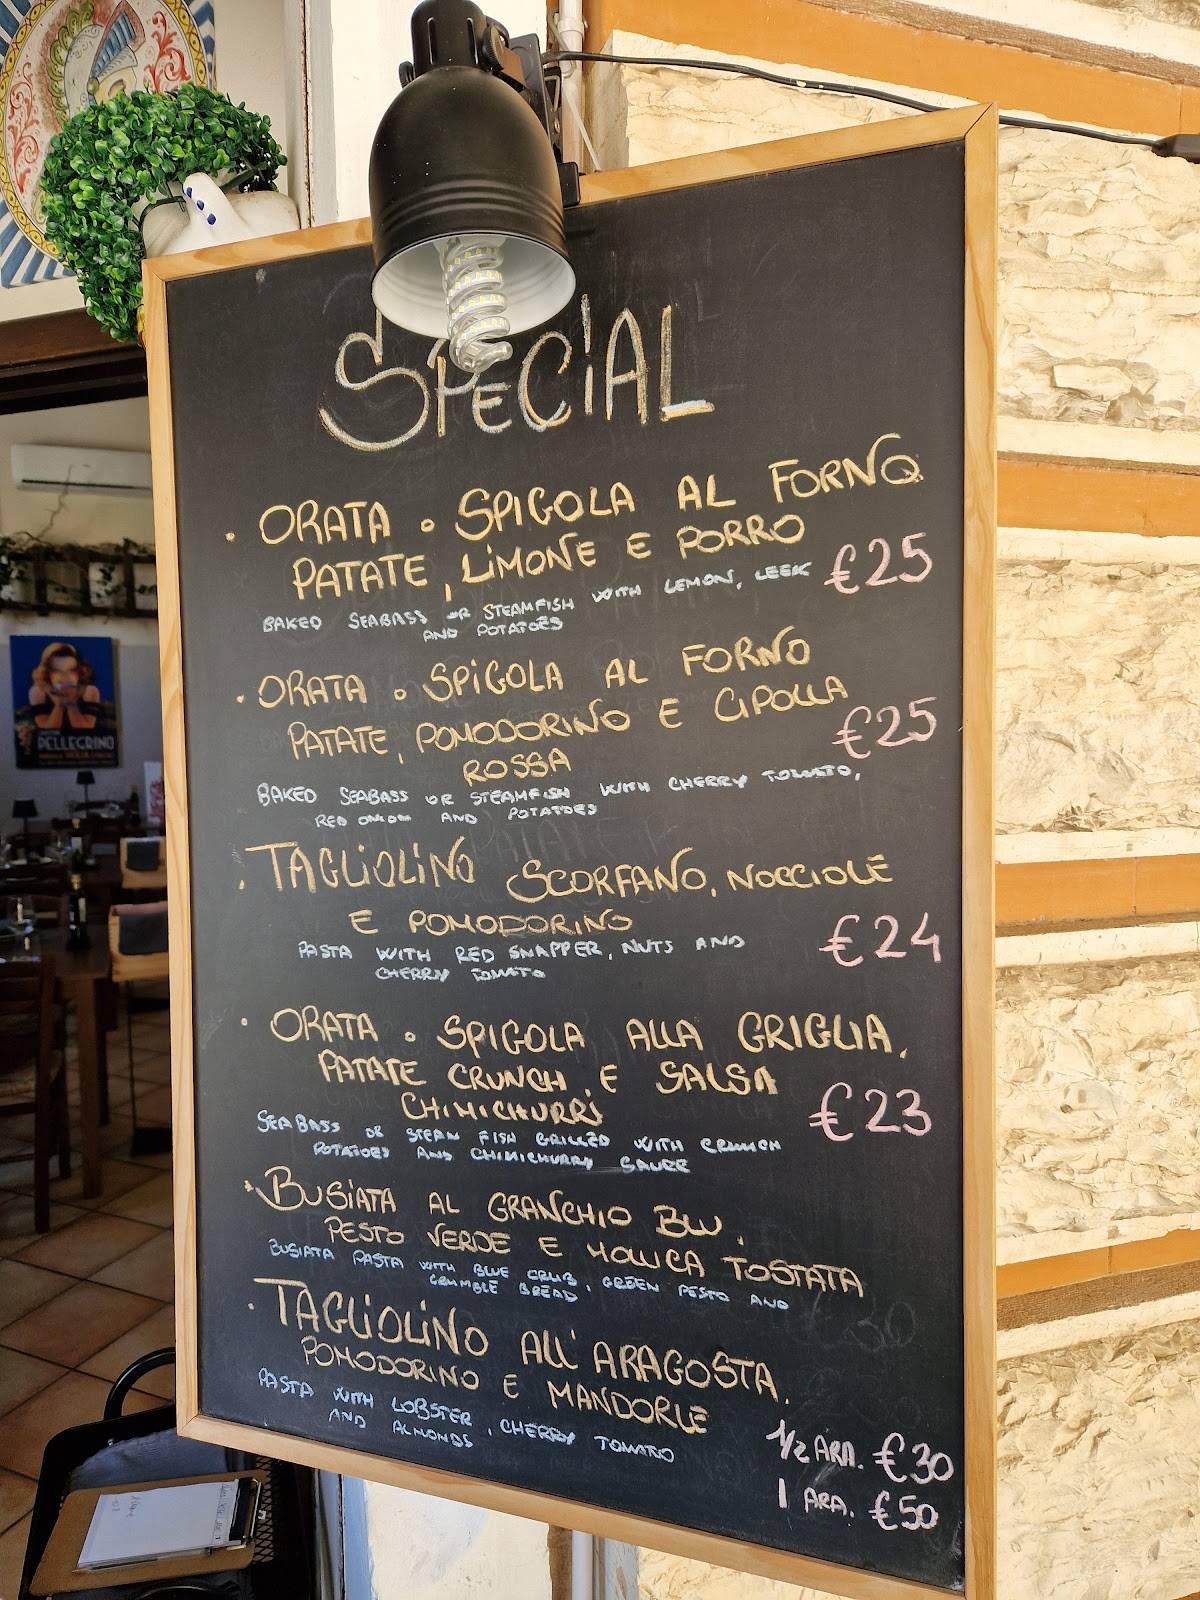 SPECIAL
· ORATA O SPIGOLA AL FORNO
PATATE, LIMONE E PORRO
€25
BAKED SEABASS OR STEAMFISH WITH LEMON, LEEK
AND POTATOES
· ORATA O SPIGOLA AL FORNO
PATATE, POMODORINO E CIPOLLA
ROSSA
€25
BAKED SEABASS OR STEAMFISH WITH CHERRY TOMATO,
RED ONION AND POTATOES
· TAGLIOLINO SCORFANO, NOCCIOLE
E POMODORINO
€24
PASTA WITH RED SNAPPER, NUTS AND
CHERRY TOMATO
· ORATA O SPIGOLA ALLA GRIGLIA,
PATATE CRUNCH, E SALSA
CHIMICHURRI
€23
SEABASS OR STEAM FISH GRILLED WITH CRUNCH
POTATOES AND CHIMICHURRY SAUCE
· BUSIATA AL GRANCHIO BLU,
PESTO VERDE E MOLLICA TOSTATA
BUSIATA PASTA WITH BLUE CRUB, GREEN PESTO AND
CRUMBLE BREAD
· TAGLIOLINO ALL' ARAGOSTA,
POMODORINO E MANDORLE
PASTA WITH LOBSTER, CHERRY TOMATO
AND ALMONDS
1/2 ARA. €30
1 ARA. €50
PELLEGRINO